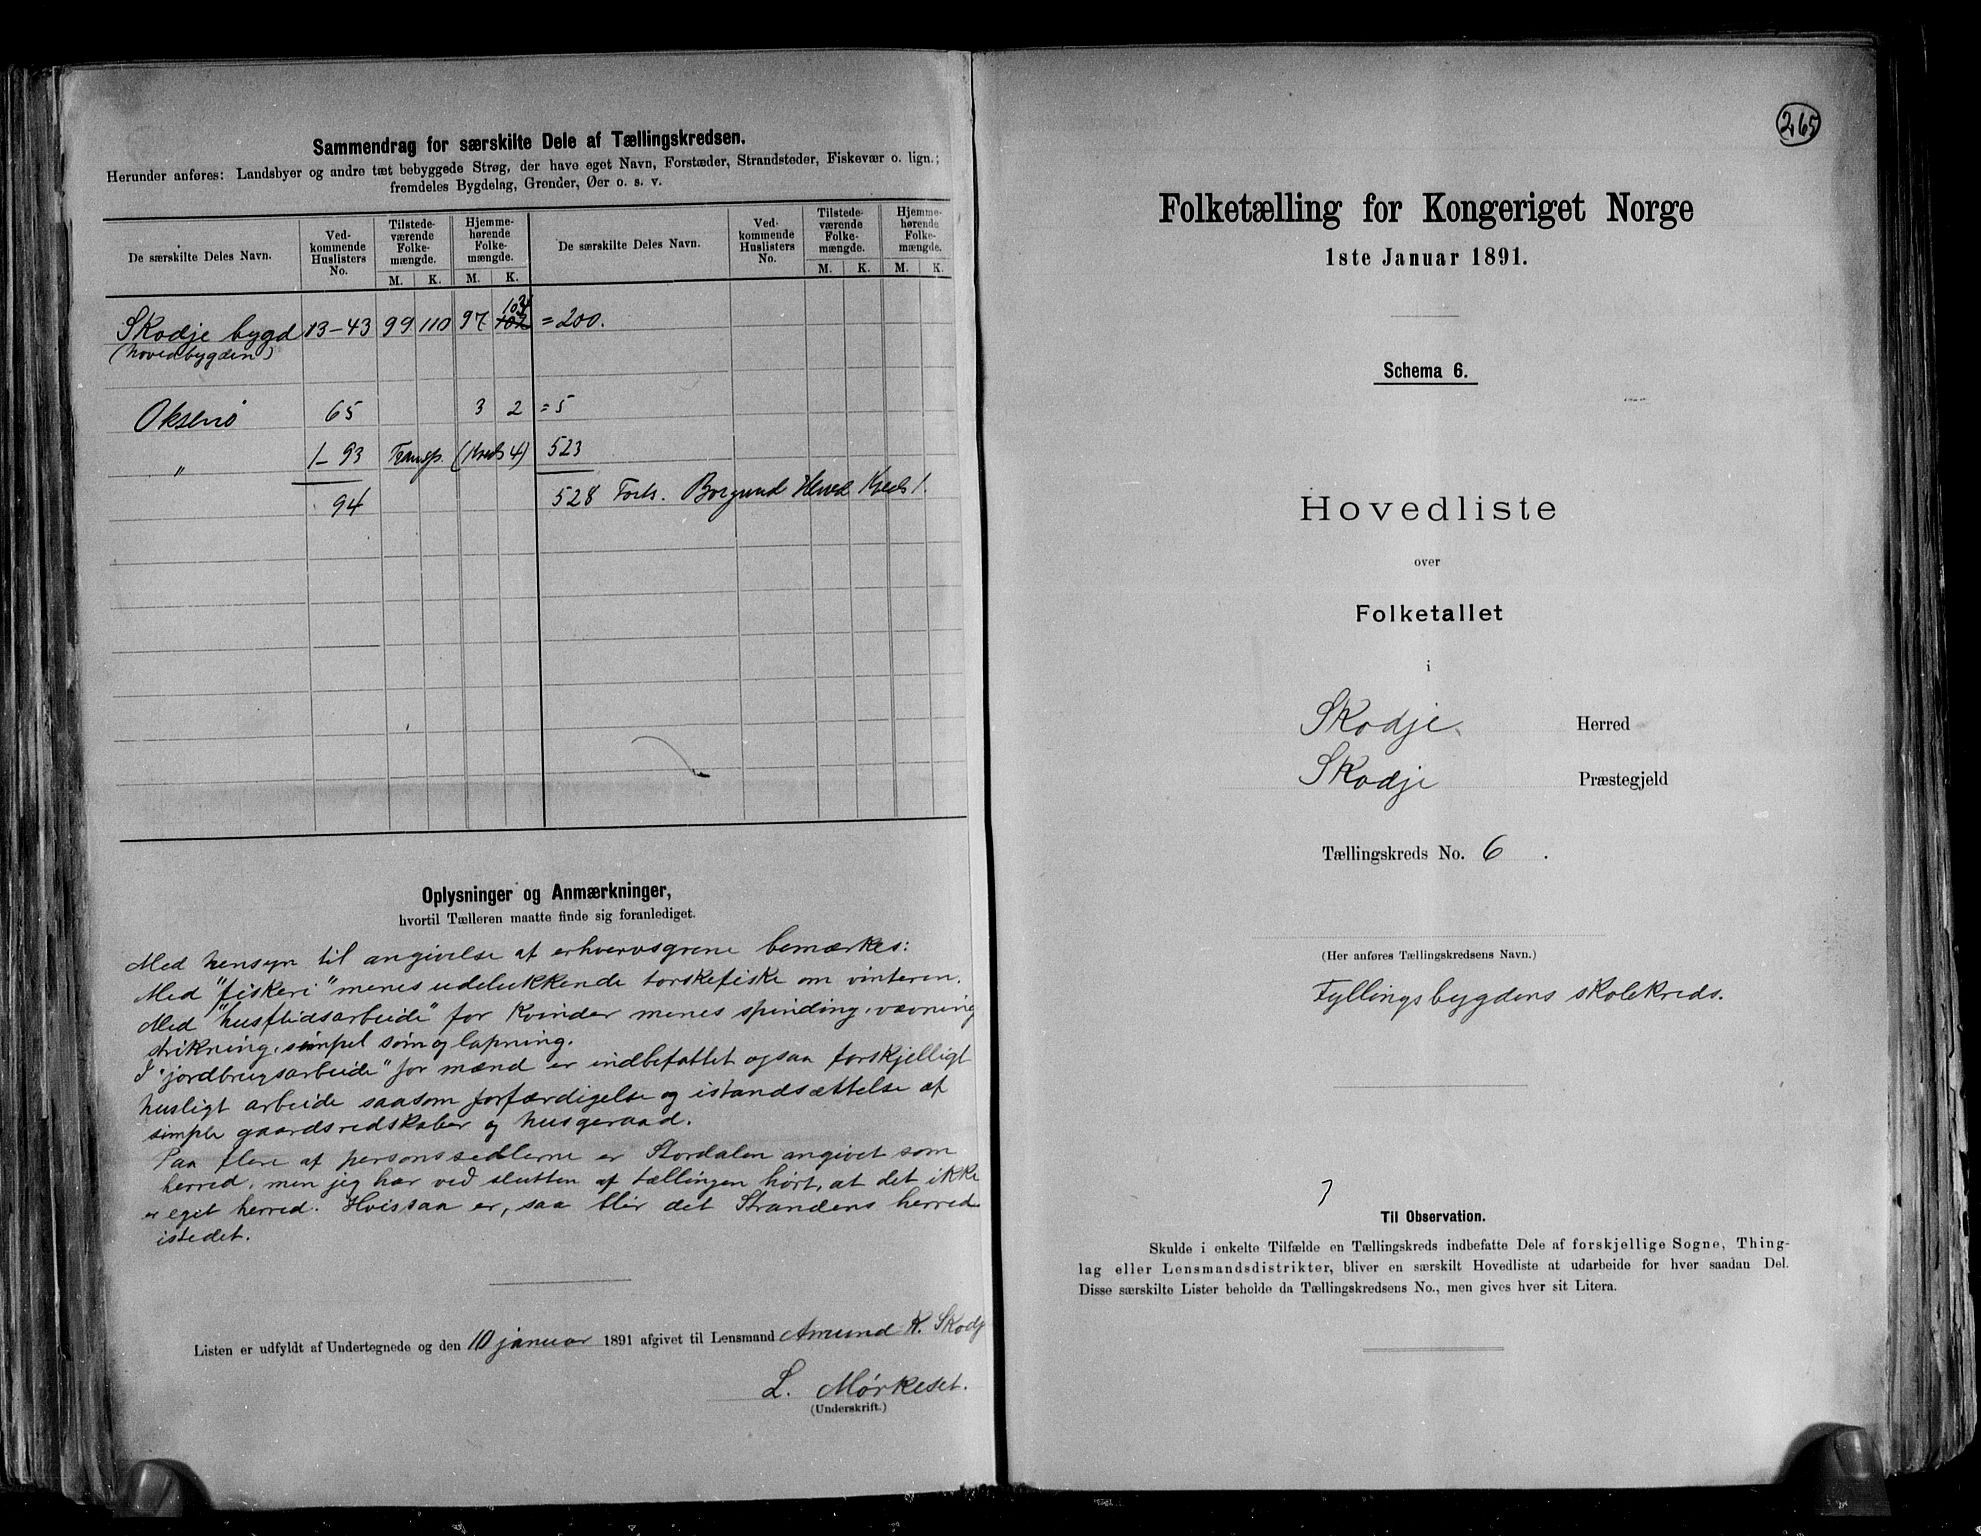 Sammendrag for særskilte Dele af Tællingskredsen.
Herunder anføres: Landsbyer og andre tæt bebyggede Strøg, der have eget Navn, Forstæder, Strandsteder, Fiskevær o. lign.;
fremdeles Bygdelag, Grender, Øer o. s. v.
De særskilte Deles Navn. Ved-kommende Huslisters No. Tilstede-værende Folke-mængde. M. K. Hjemme-hørende Folke-mængde. M. K. De særskilte Deles Navn. Ved-kommende Huslisters No. Tilstede-værende Folke-mængde. M. K. Hjemme-hørende Folke-mængde. M. K.
Skodje bygd 13-43 99 110 97 103 = 200.
(hovedbygden)
Oksenø 65 3 2 = 5
" 1-93 Transp. (Kreds 4) 523
94 528 Forts. Borgund Herred Kreds 1.
Oplysninger og Anmærkninger,
hvortil Tælleren maatte finde sig foranlediget.
Med hensyn til angivelse af erhvervsgrene bemærkes:
Med "fiskeri" menes udelukkende torskefiske om vinteren.
Med "husflidsarbeide" for kvinder menes spinding, vævning
strikning, simpel søm og lapning.
I "jordbrugsarbeide" for mænd er indbefattet ogsaa forskjelligt
husligt arbeide saasom forfærdigelse og istandsættelse af
simple gaardsredskaber og husgeraad.
Paa flere af personssedlerne er Stordalen angivet som
herred, men jeg har ved slutten af tællingen hørt, at det ikke
er eget herred. Hvis saa er, saa blir det Strandens herred
istedet.
Listen er udfyldt af Undertegnede og den 10 januar 1891 afgivet til Lensmand Amund K. Skodj
L. Mørkeset.
(Underskrift.)
265
Folketælling for Kongeriget Norge
1ste Januar 1891.
Schema 6.
Hovedliste
over
Folketallet
i
Skodje Herred
Skodje Præstegjeld
Tællingskreds No. 6 .
(Her anføres Tællingskredsens Navn.)
Fyllingsbygdens skolekreds.
Til Observation.
Skulde i enkelte Tilfælde en Tællingskreds indbefatte Dele af forskjellige Sogne, Thing-
lag eller Lensmandsdistrikter, bliver en særskilt Hovedliste at udarbeide for hver saadan Del.
Disse særskilte Lister beholde da Tællingskredsens No., men gives hver sit Litera.